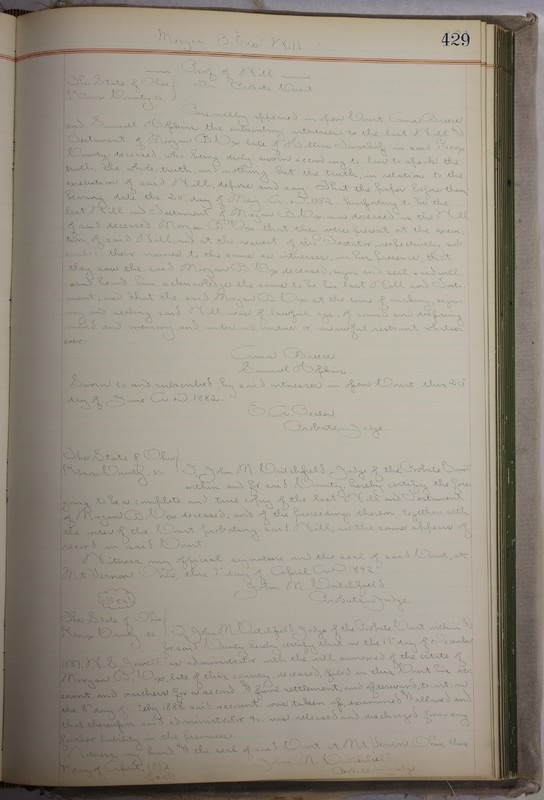 429
Morgan B. Cox Will
Proof of Will
The State of Ohio In Probate Court
Knox County ss
Personally appeared in open Court
and Samuel the subscribing witnesses to the last Will &
Testament of Morgan B. Cox late of Township in said Knox
County deceased, who being duly sworn according to law to speak the
truth, the whole truth, and nothing but the truth, in relation to the
execution of said Will, depose and say, That the paper before them
bearing date the day of May A.D. 1882, purporting to be the
last Will and Testament of Morgan B. Cox now deceased is the Will
of said deceased Morgan B. Cox that they were present at the execu-
tion of said Will, and at the request of the Testator, sub-
scribed their names to the same as witnesses, in his presence, that
they saw the said Morgan B. Cox deceased, sign and seal said will
and heard him acknowledge the same to be his last Will and Testa-
ment, and that the said Morgan B. Cox at the time of making, sign-
ing and sealing said Will was of lawful age, of sound and disposing
mind and memory and under no undue or unlawful restraint
ever
Samuel
Sworn to and subscribed by said witnesses in open Court this
day of June A.D. 1882.
Probate Judge
The State of Ohio
Knox County ss I, John M. Critchfield, Judge of the Probate Court
within and for said County, hereby certify the fore-
going to be a complete and true copy of the last Will and Testament
of Morgan B. Cox deceased; and of the proceedings thereon together with
the order of the Court probating said Will, as the same appears of
record in said Court.
Witness my official signature and the seal of said Court, at
Mt Vernon Ohio, this day of April A.D. 1892
John M. Critchfield
Seal Probate Judge
The State of Ohio
Knox County ss I, John M. Critchfield Judge of the Probate Court within &
for said County hereby certify that on the day of
as administrator with the will annexed of the estate of
Morgan B. Cox late of this county, deceased, filed in this Court his ac-
count and vouchers for a second & final settlement, and afterward, to wit, on
the day of July 1888 said account was taken up, examined & allowed and
that thereupon said administrator was released and discharged from any
further liability in the premises.
Witness my hand & the seal of said Court at Mt Vernon Ohio this
day of 1892. John M. Critchfield
Seal Probate Judge